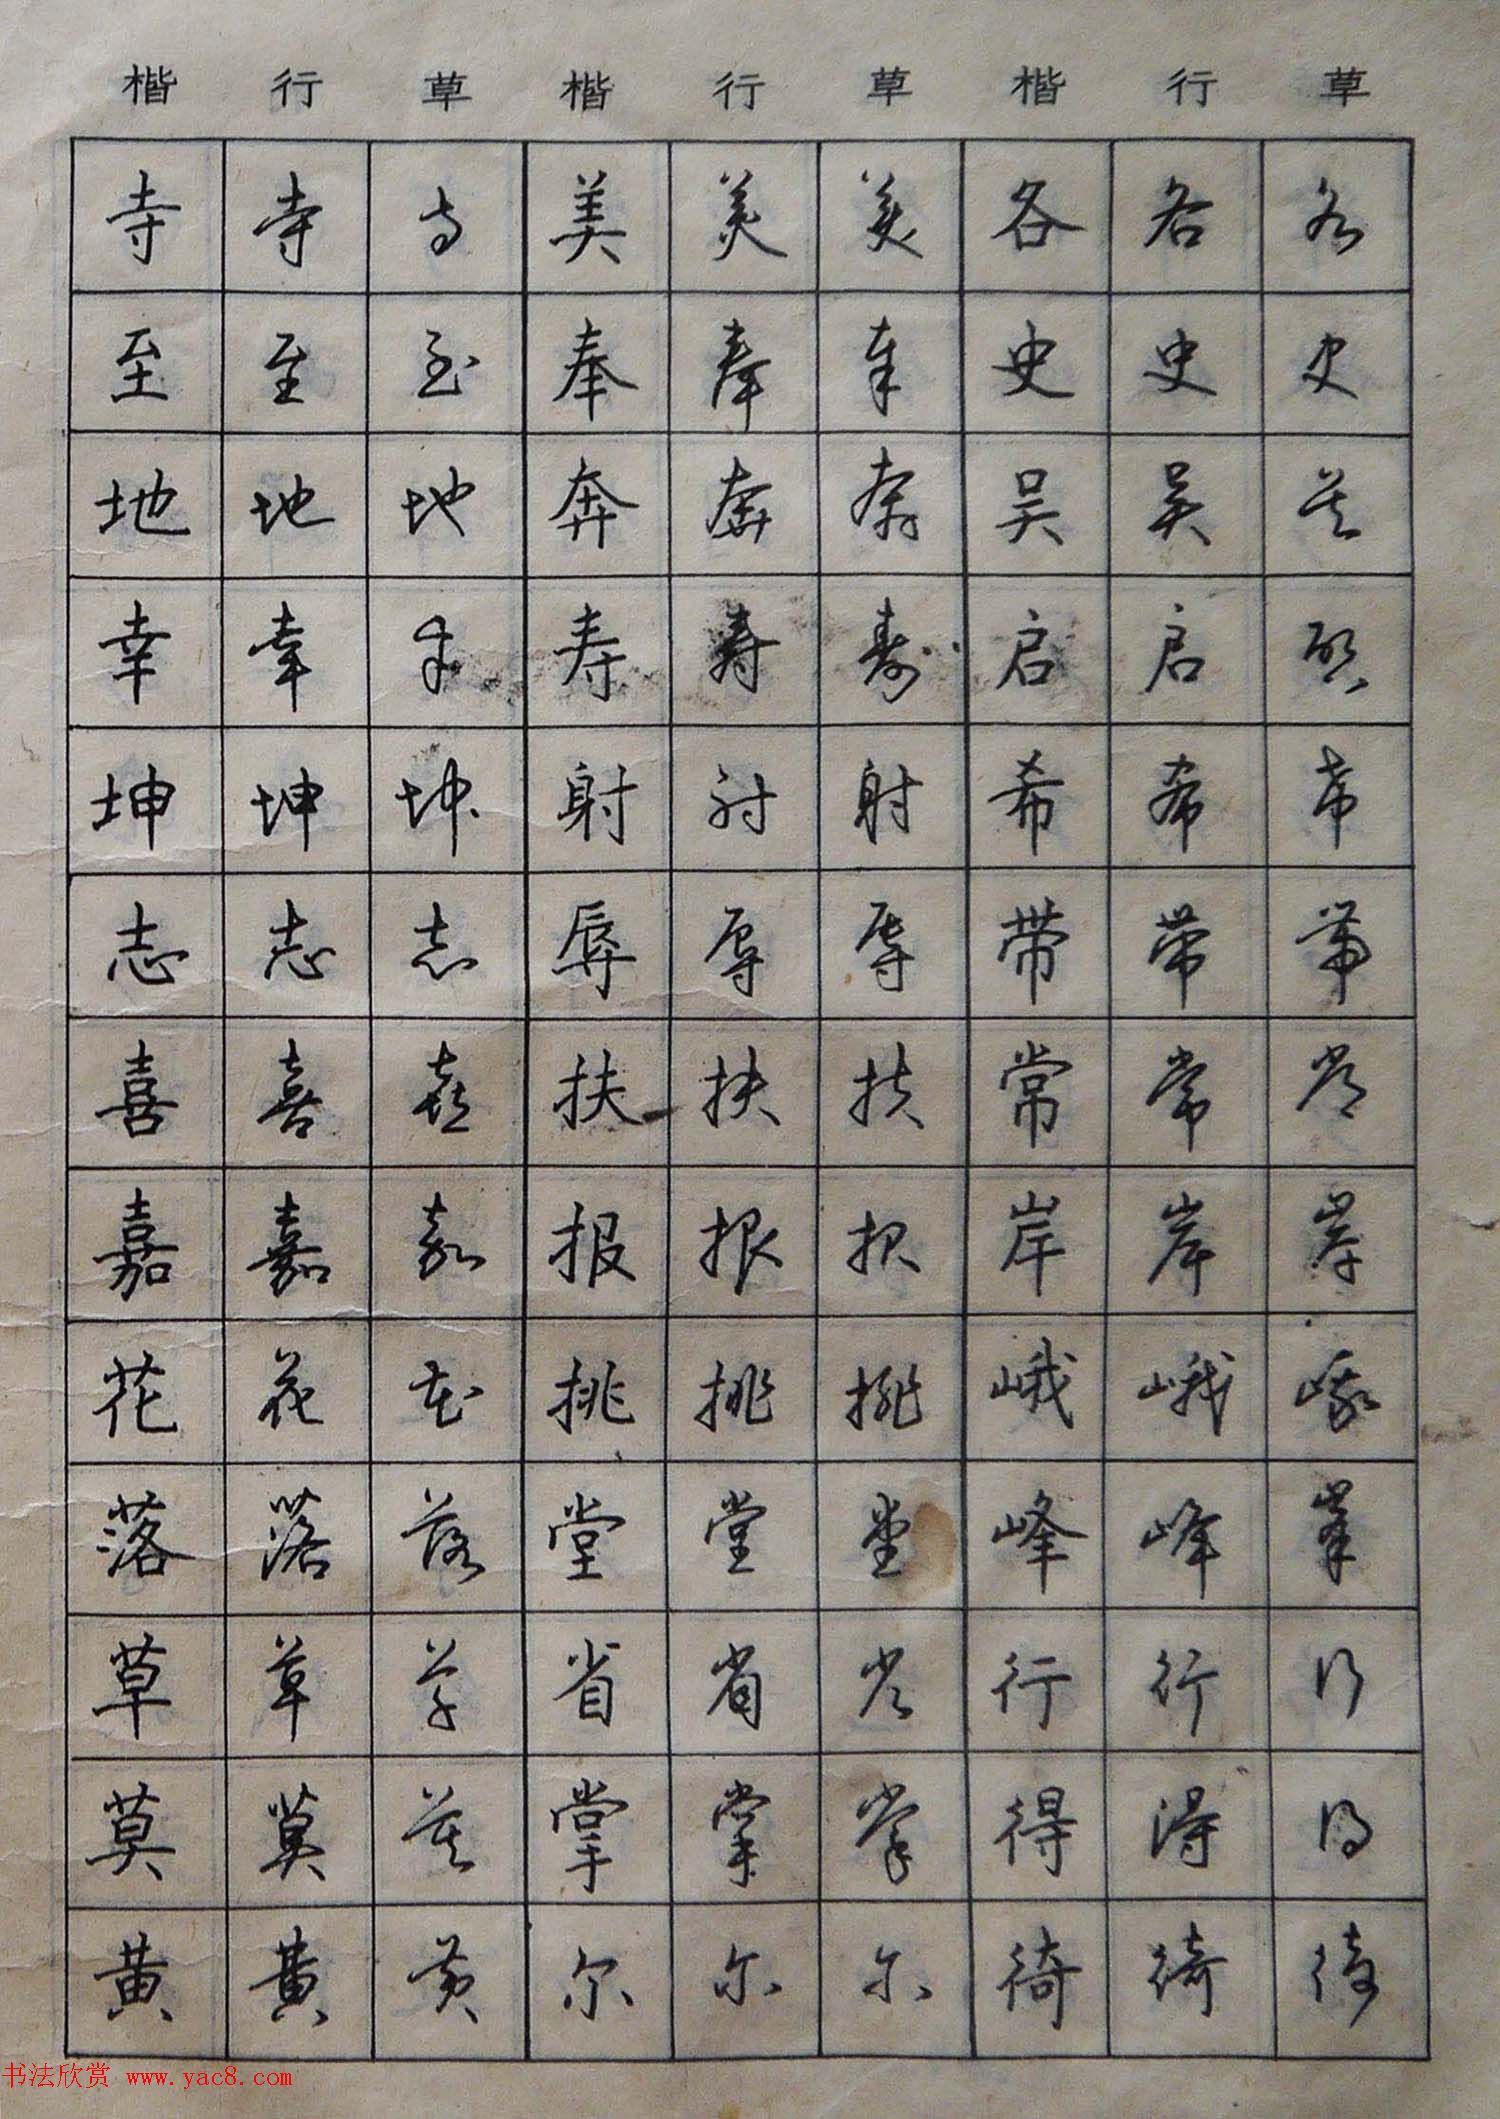 楷 行 草 楷 行 草 楷 行 草
寺 寺 寺 美 美 美 各 各 各
至 至 至 奉 奉 奉 史 史 史
地 地 地 奔 奔 奔 吴 吴 吴
幸 幸 幸 寿 寿 寿 启 启 启
坤 坤 坤 射 射 射 希 希 希
志 志 志 辱 辱 辱 带 带 带
喜 喜 喜 扶 扶 扶 常 常 常
嘉 嘉 嘉 报 报 报 岸 岸 岸
花 花 花 挑 挑 挑 峨 峨 峨
落 落 落 堂 堂 堂 峰 峰 峰
草 草 草 省 省 省 行 行 行
莫 莫 莫 掌 掌 掌 得 得 得
黄 黄 黄 尔 尔 尔 徛 徛 徛
书法欣赏 www.yac8.com